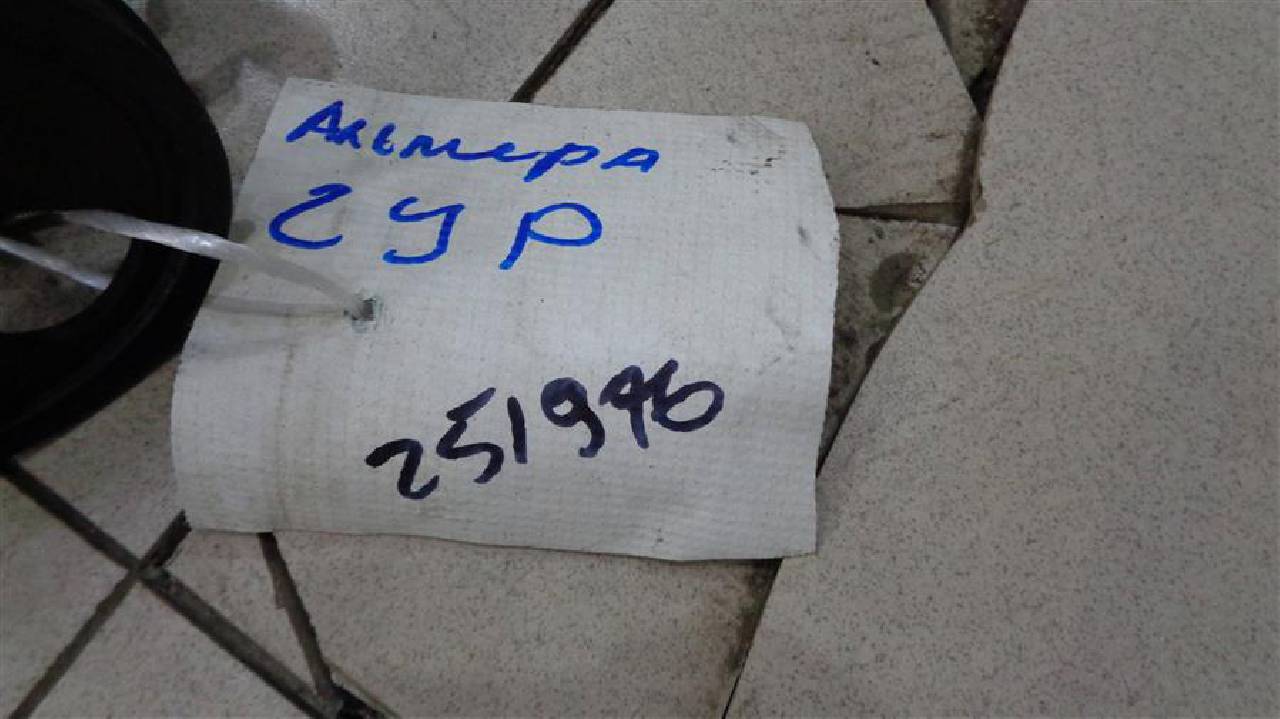 Альтера
ГУР
251946